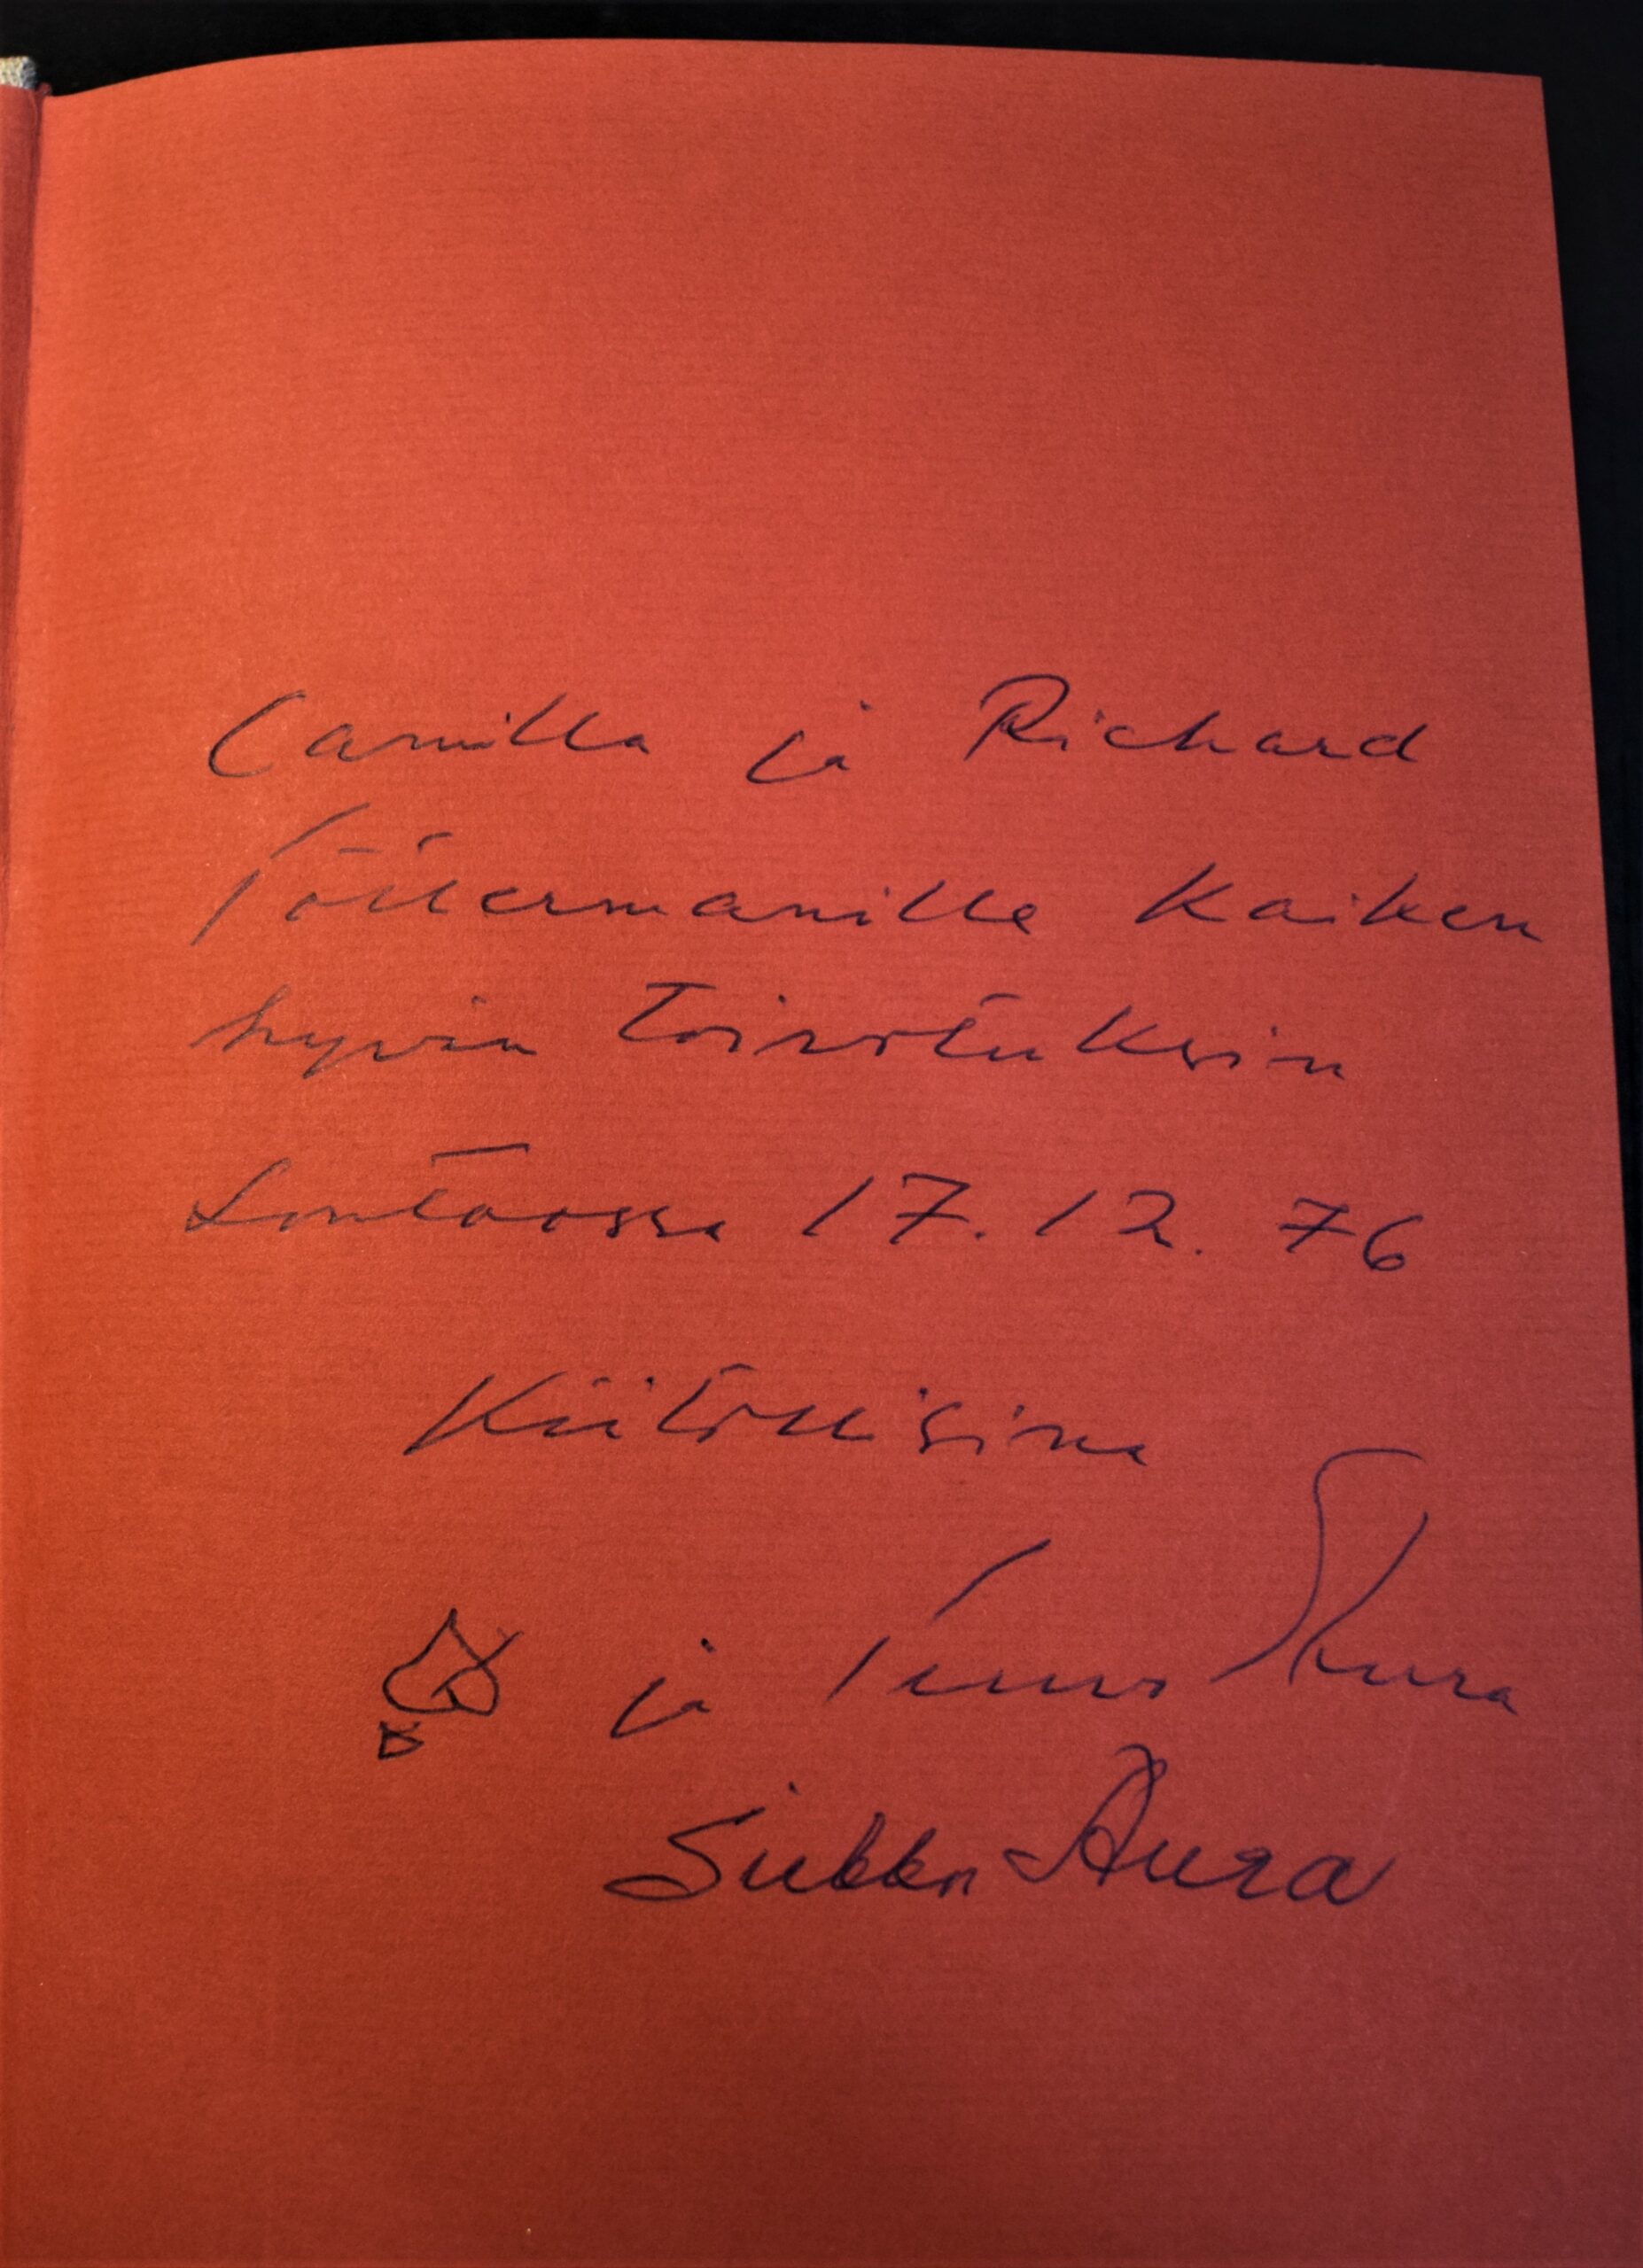 Camilla ja Richard
Töttermanille kaiken
hyvän toivotuksin
Lontoossa 17.12.76
Kiitollisina
ja Teuvo Aura
Aura